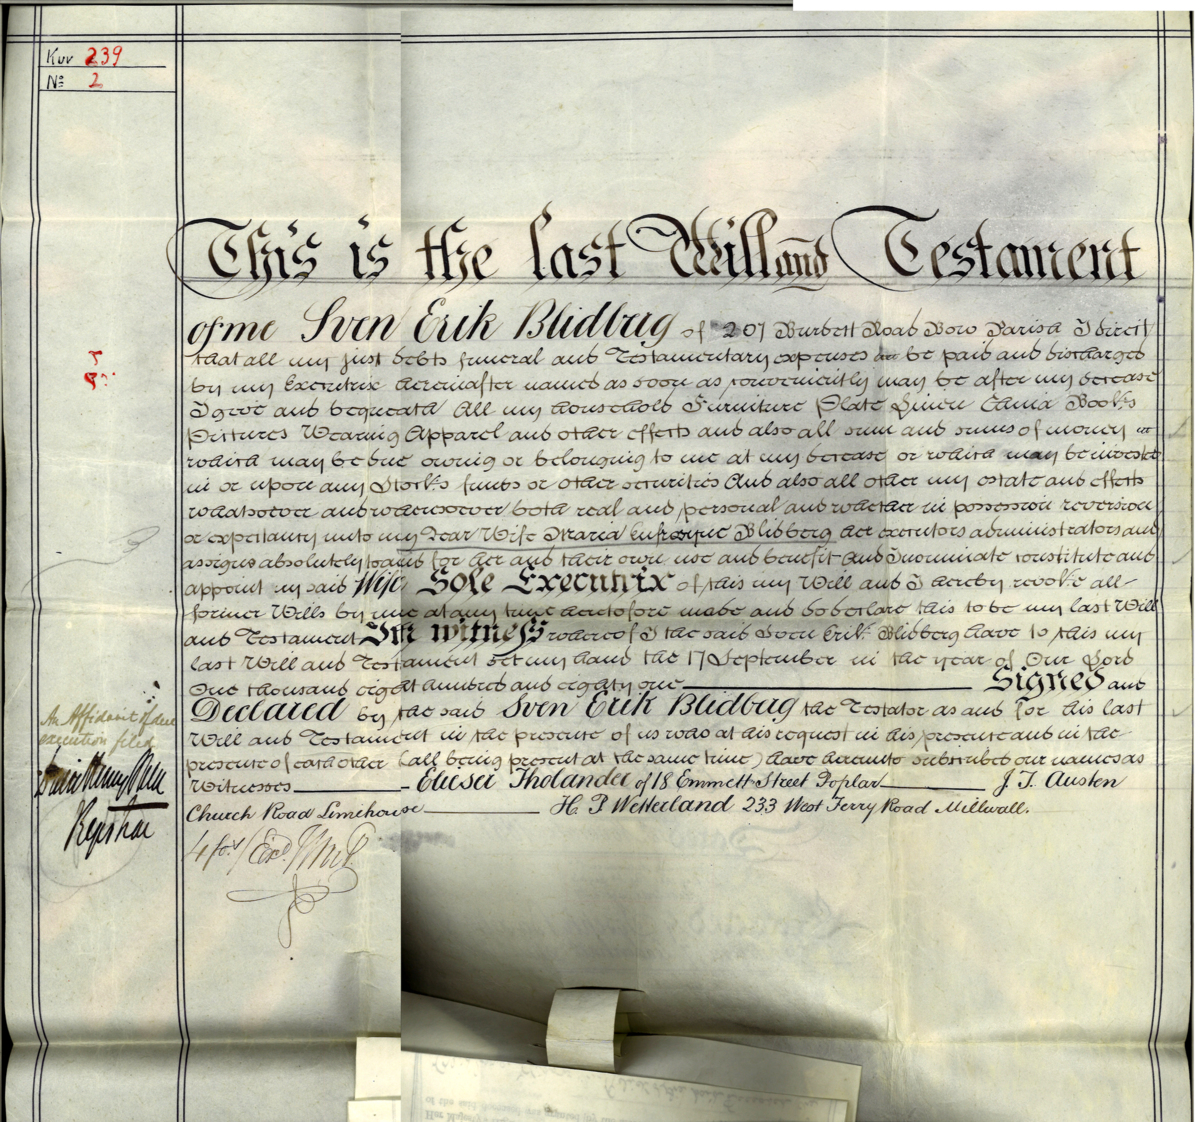 Kuv 239
No 2
This is the last Will and Testament
of me Sven Erik Blidbug of 207 Burdett Road Bow Parish I direct
that all my just debts funeral and Testamentary expenses be paid and discharged
by my Executrix hereinafter named as soon as conveniently may be after my decease
I give and bequeath All my household Furniture Plate Linen China Books
Pictures Wearing Apparel and other effects and also all sum and sums of money
which may be due owing or belonging to me at my decease or which may be invested
in or upon any Stocks funds or other securities And also all other my estate and effects
whatsoever and wheresoever both real and personal and whether in possession reversion
or expectancy unto my Dear Wife Maria Eufrosyne Blidberg her executors administrators and
assigns absolutely to and for her and their own use and benefit And I nominate constitute and
appoint my said Wife Sole Executrix of this my Will and I hereby revoke all
former Wills by me at any time heretofore made and do declare this to be my last Will
and Testament In witness whereof I the said Sven Erik Blidberg have to this my
last Will and Testament set my hand the 17 September in the year of Our Lord
One thousand eight hundred and eighty one Signed and
Declared by the said Sven Erik Blidbug the Testator as and for his last
Will and Testament in the presence of us who at his request in his presence and in the
presence of each other (all being present at the same time) have hereunto subscribed our names as
Witnesses Elieser Tholander of 18 Emmett Street Poplar J. T. Austen
Church Road Limehouse H. P Wetterland 233 West Ferry Road Millwall.
An Affidavit of due
execution filed
Henry
Registrar